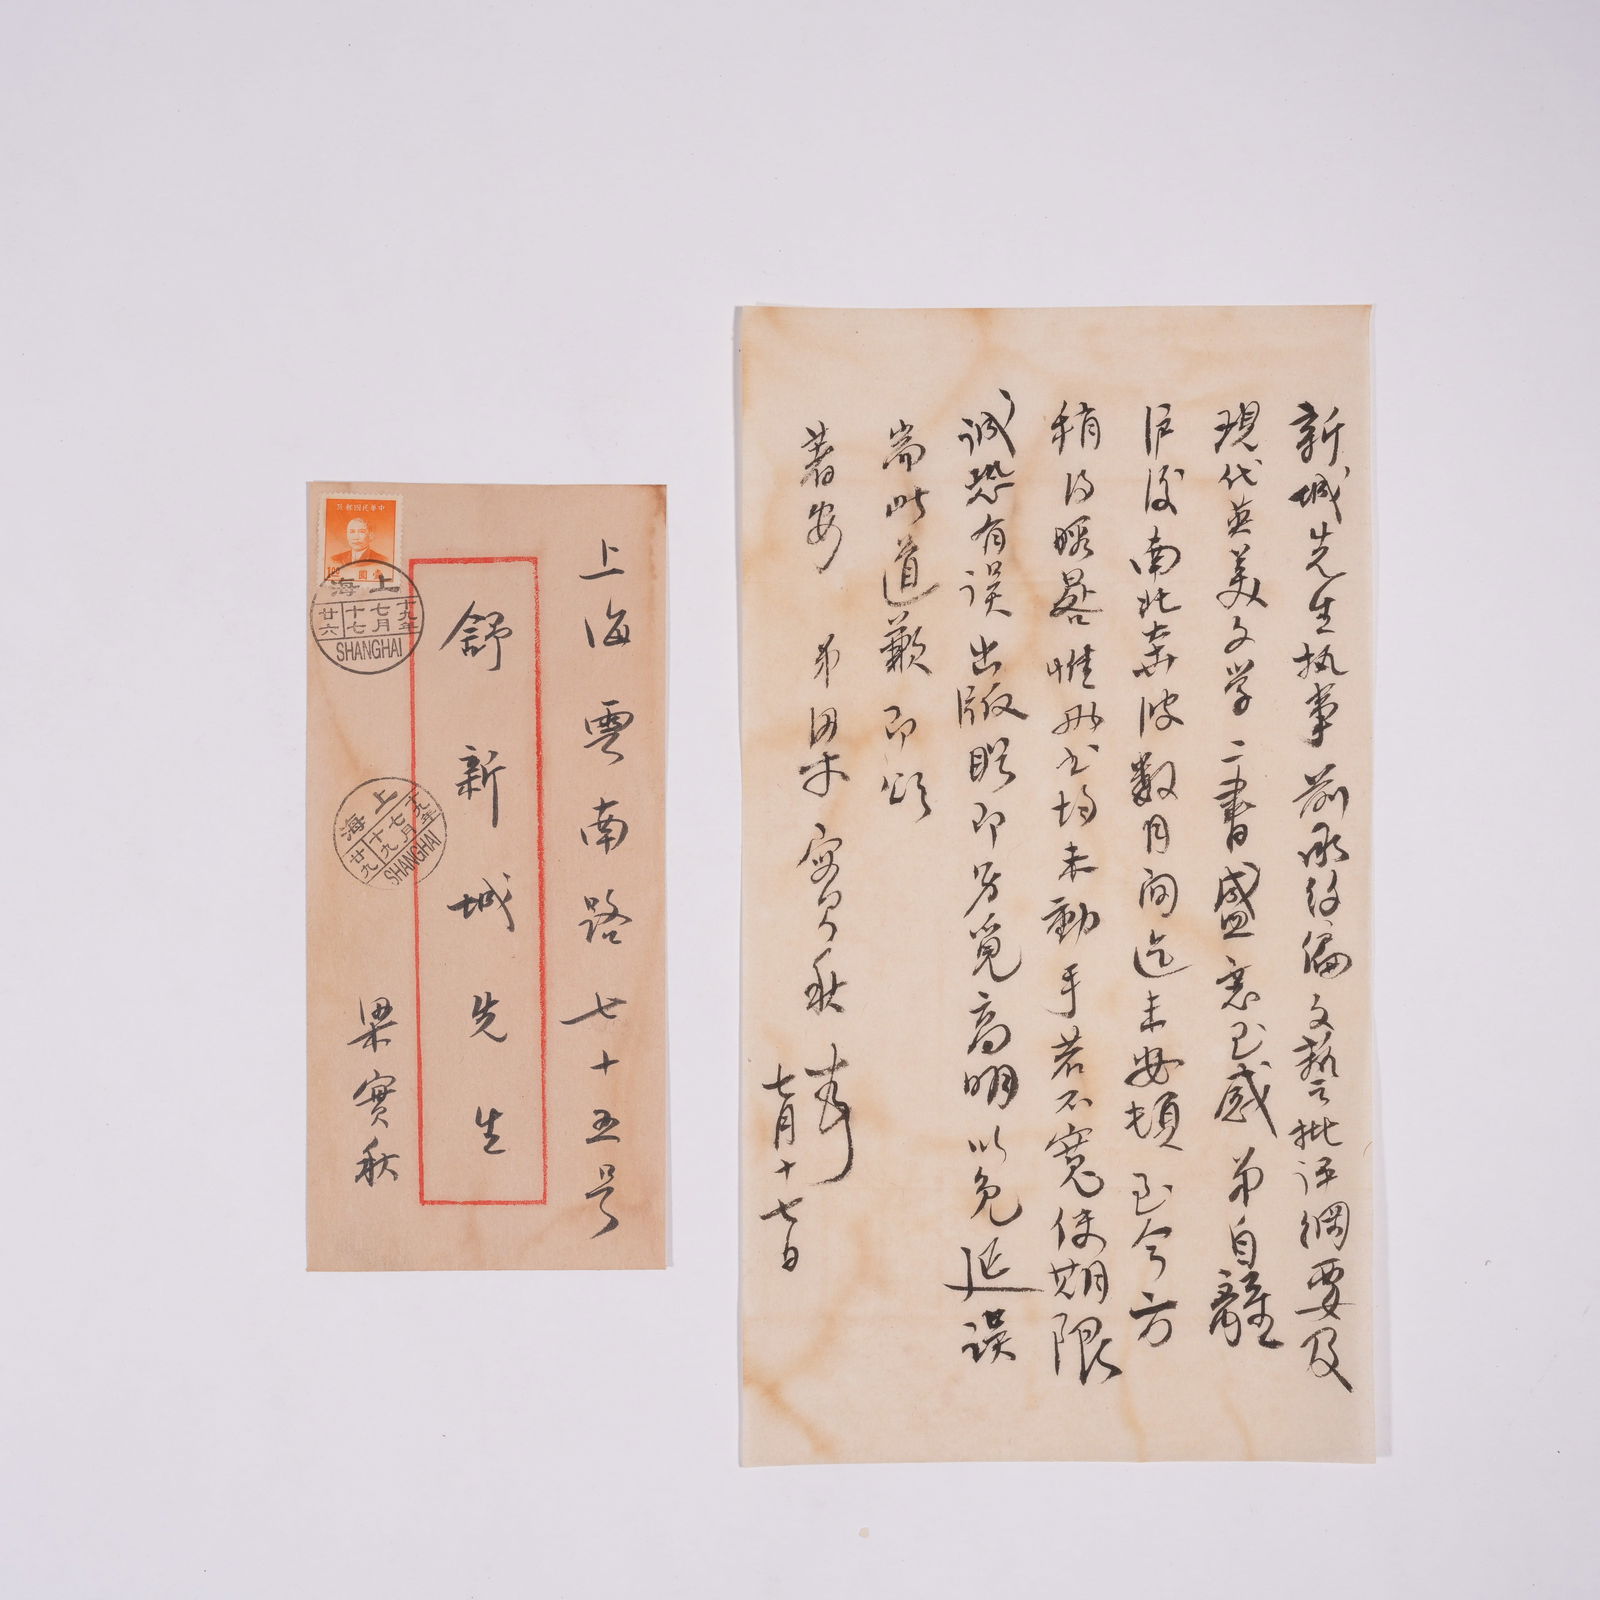 新城先生执事前承约编文艺批评綱要及
現代英美文学二書盛意至感弟自離
沪後南北奔波数月间迄未安頓至今方
稍得暇晷惟册书均未動手若不寬使期限
诚恐有误出版眂即另覓高明以免延误
耑此道歉即頌
著安　弟梁實秋
七月十七日
上海雲南路七十五号
舒新城先生
梁實秋
中華民國郵政
壹圓
100
上海
十九年
七月
十七
廿六
SHANGHAI
上海
十九年
七月
十九
廿九
SHANGHAI